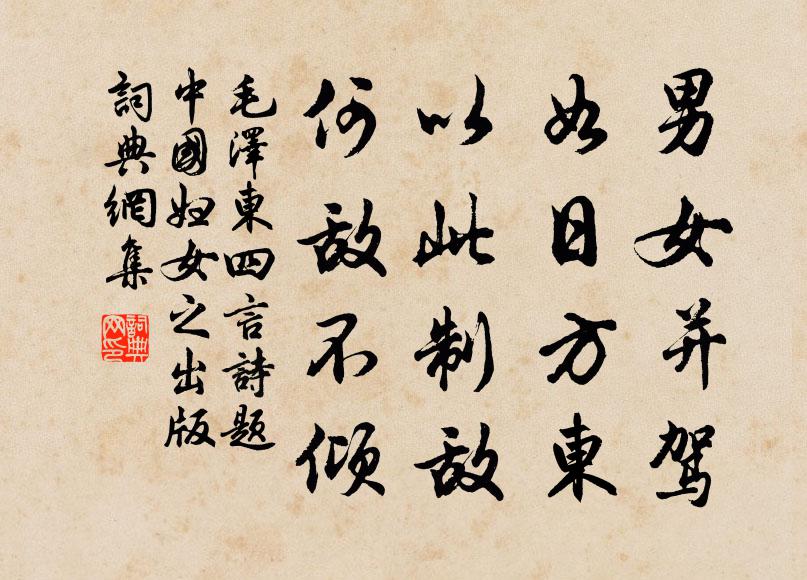 男女并駕
如日方東
以此制敵
何敵不傾
毛澤東四言詩題
中國妇女之出版
詞典網集
詞典
网印